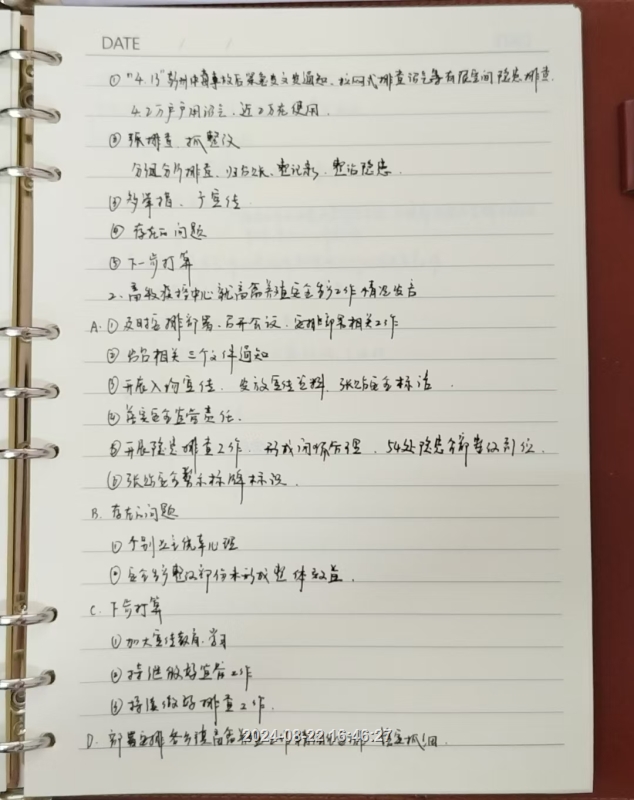 DATE / /
① "4.13"彭州中毒事故后紧急发文发通知、拉网式排查沼气等有限空间隐患排查.
4.2万户户用沼气、近2万在使用.
② 强排查、抓整改
分组分片排查、归台账、建记录、整治隐患.
③ 多举措、广宣传
④ 存在的问题
⑤ 下一步打算
2、畜牧疫控中心就畜禽养殖安全生产工作情况发言
A. ① 及时安排部署、召开会议、安排部署相关工作
② 相关三个文件通知
③ 开展入户宣传、发放宣传资料、张贴安全标语.
④ 落实安全监管责任.
⑤ 开展隐患排查工作、形成闭环管理、54处隐患全部整改到位.
⑥ 张贴安全警示标牌标识.
B. 存在的问题
① 个别业主侥幸心理
② 安全生产整改部份未形成整体效益.
C. 下步打算
① 加大宣传教育、学习
② 持续做好监管工作
③ 持续做好排查工作.
2024-08-22 16:46:27
D. 部署安排各乡镇畜禽养殖